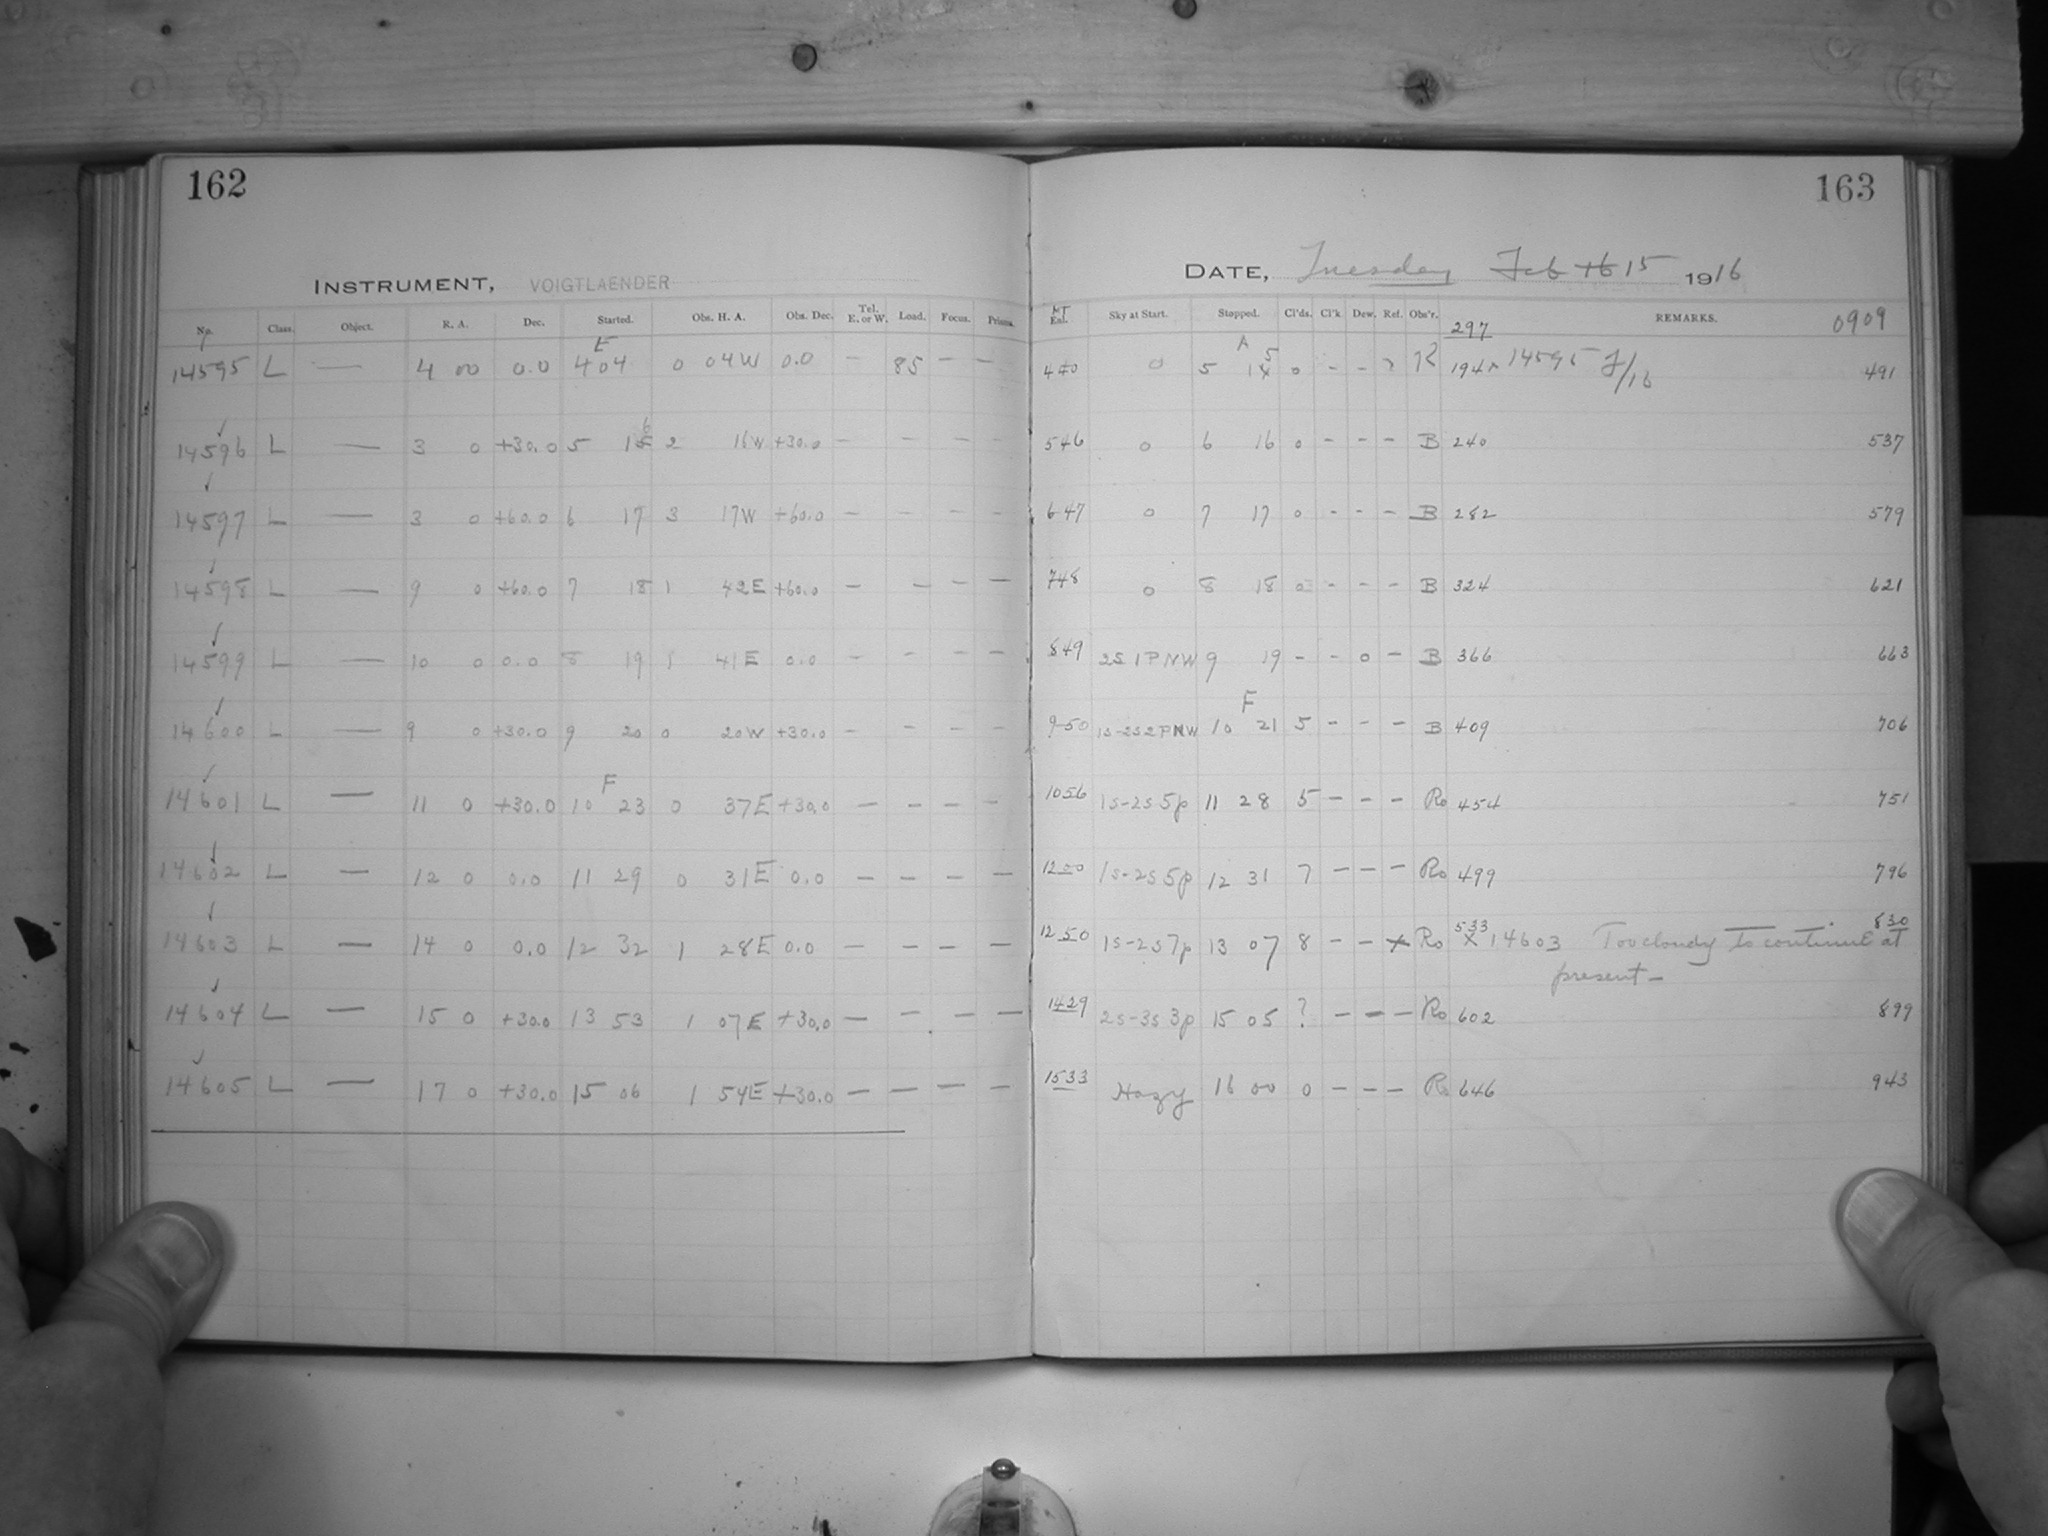 162
INSTRUMENT, VOIGTLAENDER
No. Class. Object. R. A. Dec. Started. Obs. H. A. Obs. Dec. Tel. E. or W. Load. Focus. Prisms.
14595 L — 4 00 0.0 4 04 0 04W 0.0 — 85 — —
14596 L — 3 0 +30.0 5 16 2 16W +30.0 — — — —
14597 L — 3 0 +60.0 6 17 3 17W +60.0 — — — —
14598 L — 9 0 +60.0 7 18 1 42E +60.0 — — — —
14599 L — 10 0 0.0 8 19 1 41E 0.0 — — — —
14600 L — 9 0 +30.0 9 20 0 20W +30.0 — — — —
F
14601 L — 11 0 +30.0 10 23 0 37E +30.0 — — — —
14602 L — 12 0 0.0 11 29 0 31E 0.0 — — — —
14603 L — 14 0 0.0 12 32 1 28E 0.0 — — — —
14604 L — 15 0 +30.0 13 53 1 07E +30.0 — — — —
14605 L — 17 0 +30.0 15 06 1 54E +30.0 — — — —
163
DATE, Tuesday Feb 16 15 1916
MT Exl. Sky at Start. Stopped. Cl'ds. Cl'k. Dew. Ref. Obs'r. REMARKS. 0909
297
A
440 0 5 15 0 - - K 194 14595 F/16 491
546 0 6 16 0 - - - B 240 537
647 0 7 17 0 - - - B 282 579
748 0 8 18 0 - - - B 324 621
849 2S 1P NW 9 19 - - 0 - B 366 663
F
950 1S-2S 2P NW 10 21 5 - - - B 409 706
1056 1s-2s 5p 11 28 5 - - - Ro 454 751
1200 1s-2s 5p 12 31 7 - - - Ro 499 796
1250 1s-2s 7p 13 07 8 - - x Ro 533 x 14603 Too cloudy to continue at 830
present—
1429 2s-3s 3p 15 05 ? - - - Ro 602 899
1533 Hazy 16 00 0 - - - Ro 646 943